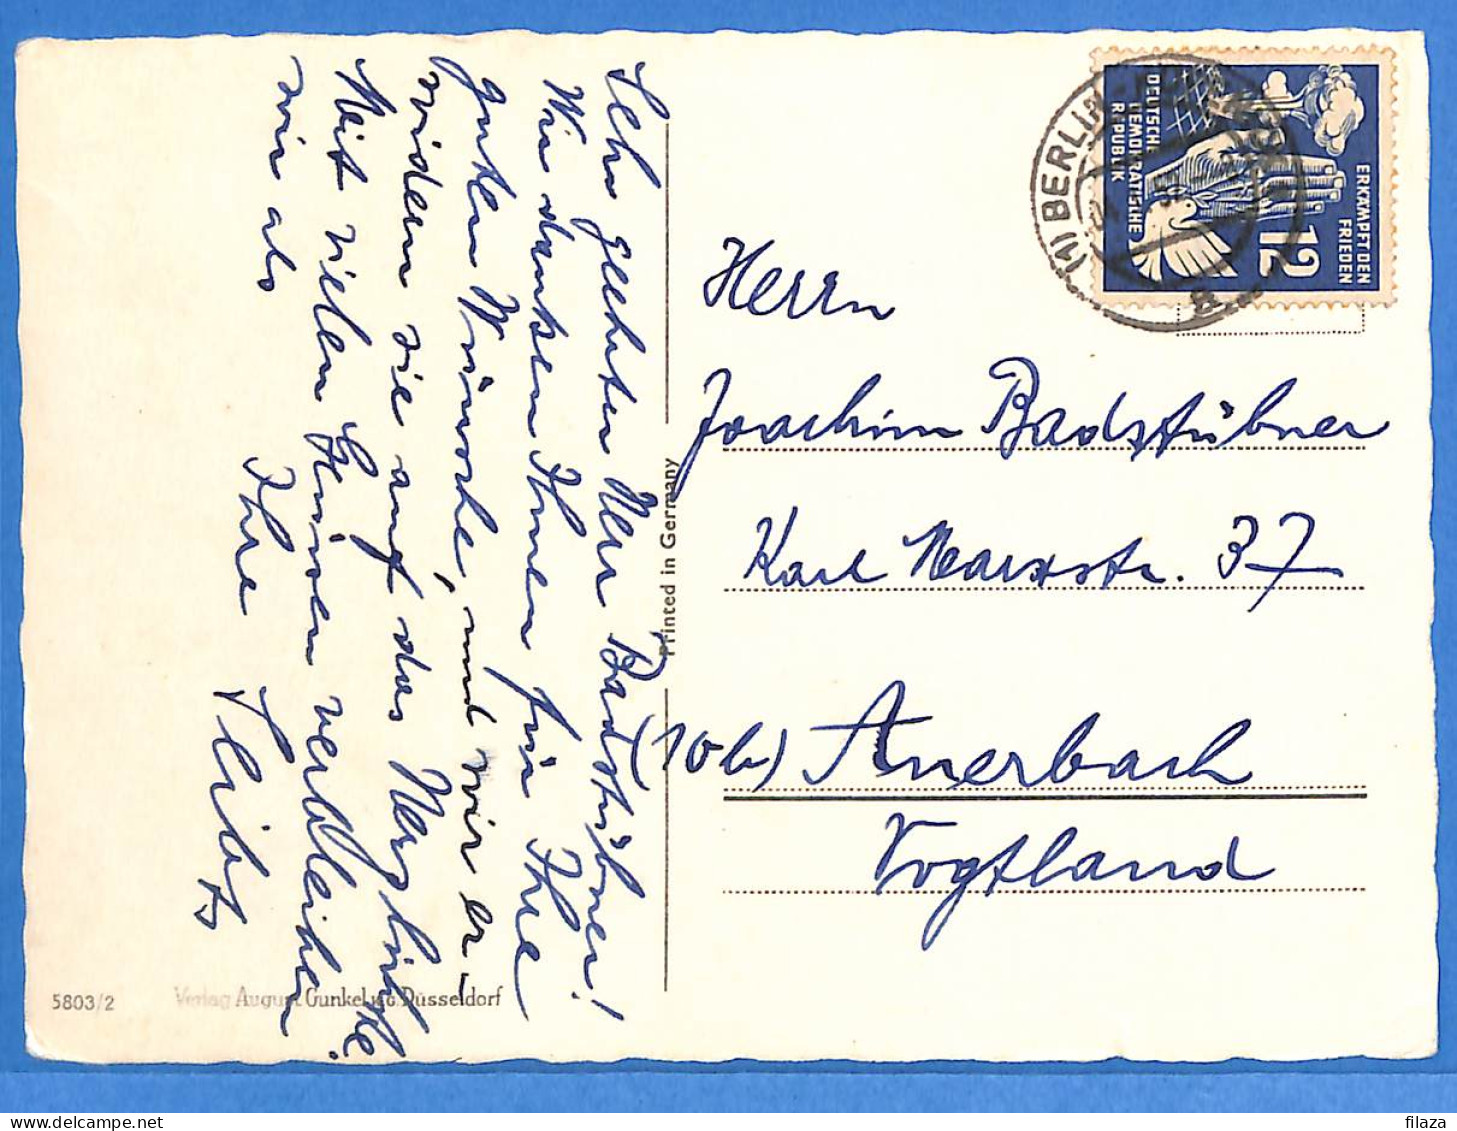 Sehr geehrter Herr Badstübner!
Wir danken Ihnen für Ihre
guten Wünsche, und wir er-
widern sie auf das Herzlichste.
Mit vielen Grüssen verbleiben
wir als
Ihre
Printed in Germany
5803/2
Verlag August Gunkel Düsseldorf
(1) BERLIN
DEUTSCHE
DEMOKRATISCHE
REPUBLIK
ERKÄMPFT DEN
FRIEDEN
12
Herrn
Joachim Badstübner
Karl Marxstr. 37
(10b) Auerbach
Vogtland
filaza